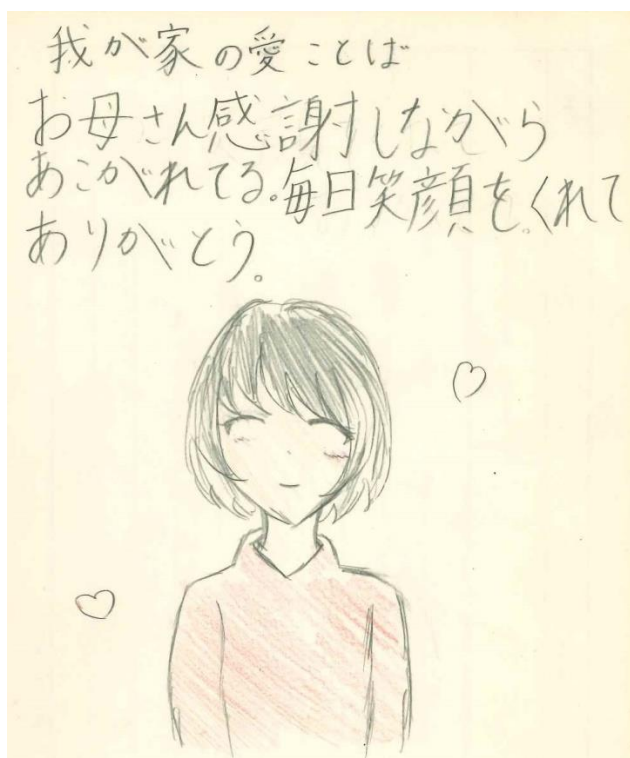 我が家の愛ことば
お母さん感謝しながら
あこがれてる。毎日笑顔をくれて
ありがとう。